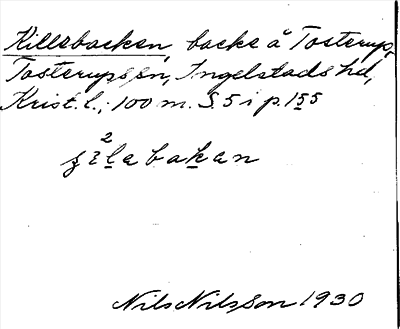 Killebacken, backe å Tosterup,
Tosterups sn, Ingelstads hd,
Krist. l.; 100 m. S. 5 i p. 155
2
ʒilabakan
Nils Nilsson 1930